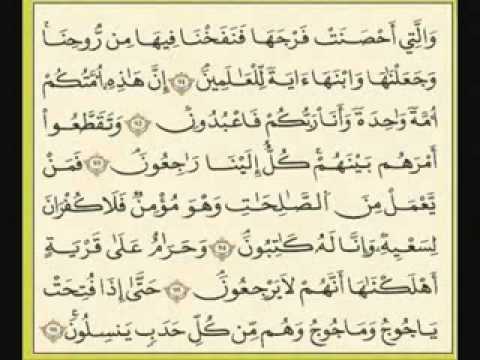 وَالَّتِي أَحْصَنَتْ فَرْجَهَا فَنَفَخْنَا فِيهَا مِن رُّوحِنَا
وَجَعَلْنَٰهَا وَابْنَهَا ءَايَةً لِّلْعَٰلَمِينَ ٩١ إِنَّ هَٰذِهِ أُمَّتُكُمْ
أُمَّةً وَٰحِدَةً وَأَنَا رَبُّكُمْ فَاعْبُدُونِ ٩٢ وَتَقَطَّعُوا
أَمْرَهُم بَيْنَهُمْ كُلٌّ إِلَيْنَا رَٰجِعُونَ ٩٣ فَمَن
يَعْمَلْ مِنَ الصَّٰلِحَٰتِ وَهُوَ مُؤْمِنٌ فَلَا كُفْرَانَ
لِسَعْيِهِ وَإِنَّا لَهُ كَٰتِبُونَ ٩٤ وَحَرَٰمٌ عَلَىٰ قَرْيَةٍ
أَهْلَكْنَٰهَا أَنَّهُمْ لَا يَرْجِعُونَ ٩٥ حَتَّىٰ إِذَا فُتِحَتْ
يَأْجُوجُ وَمَأْجُوجُ وَهُم مِّن كُلِّ حَدَبٍ يَنسِلُونَ ٩٦